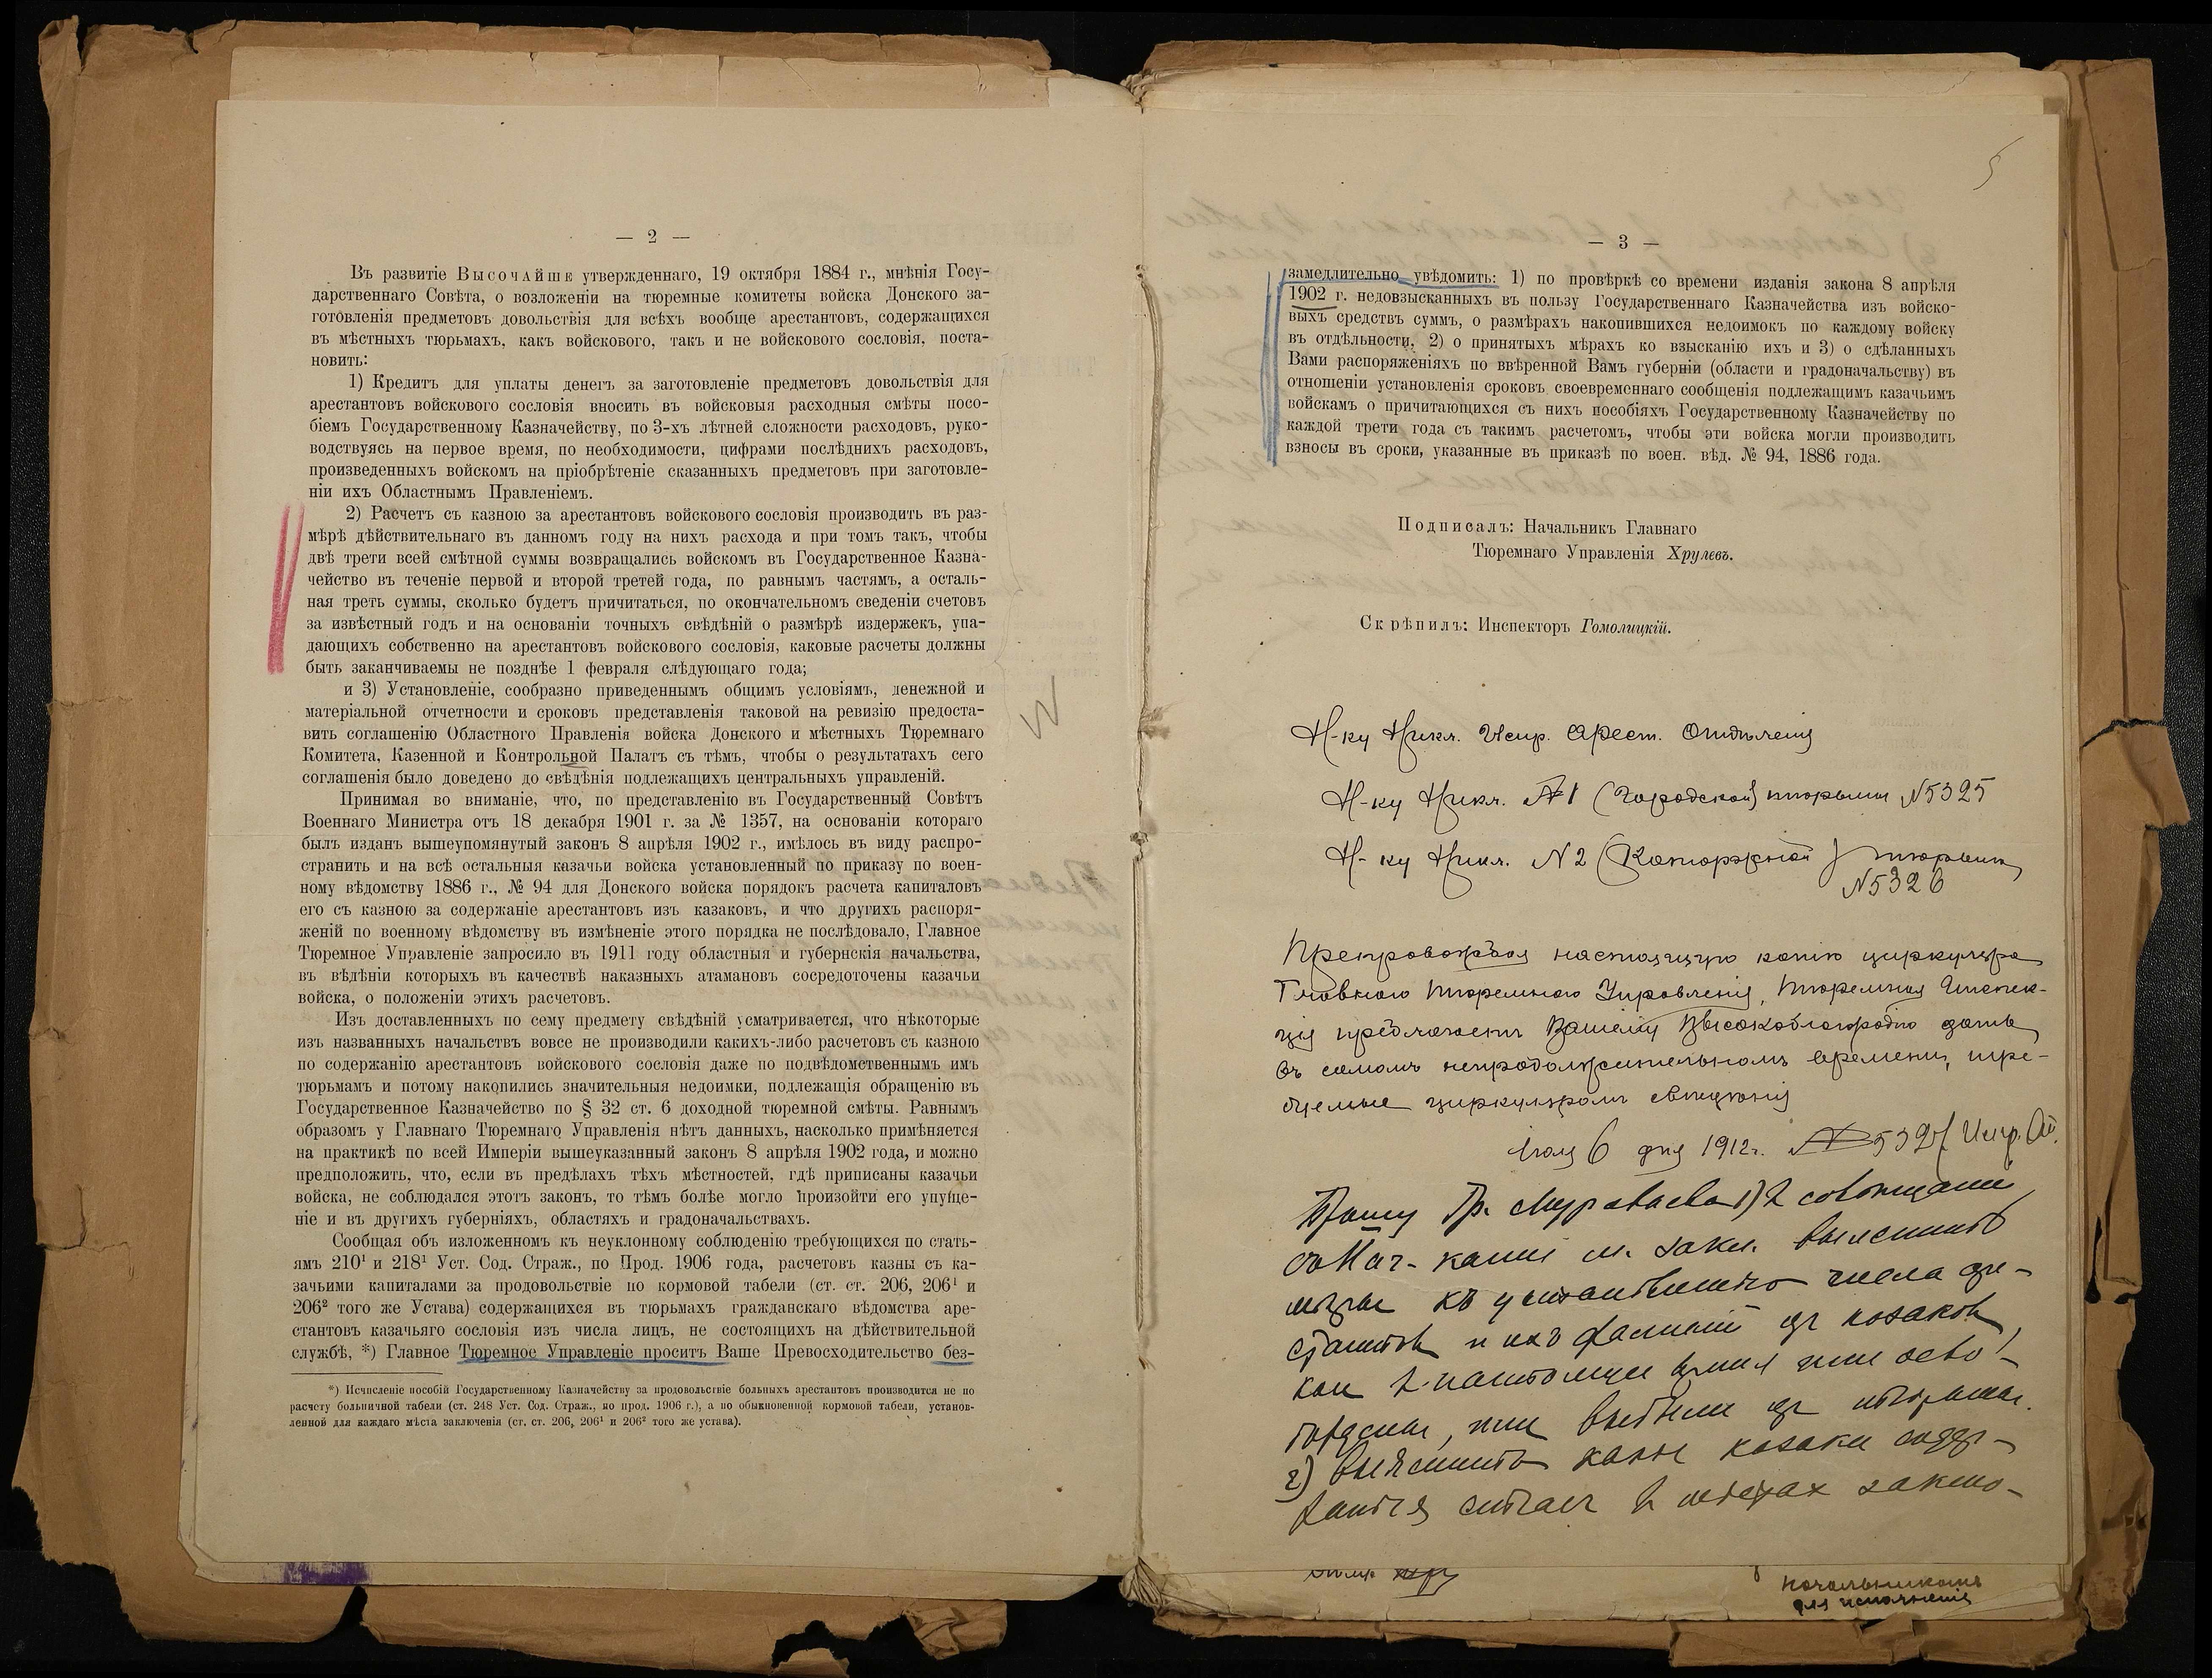 — 2 —
Въ развитіе Высочайше утвержденнаго, 19 октября 1884 г., мнѣнія Госу-
дарственнаго Совѣта, о возложеніи на тюремные комитеты войска Донского за-
готовленія предметовъ довольствія для всѣхъ вообще арестантовъ, содержащихся
въ мѣстныхъ тюрьмахъ, какъ войскового, такъ и не войскового сословія, поста-
новить:
1) Кредитъ для уплаты денегъ за заготовленіе предметовъ довольствія для
арестантовъ войскового сословія вносить въ войсковыя расходныя смѣты посо-
біемъ Государственному Казначейству, по 3-хъ лѣтней сложности расходовъ, руко-
водствуясь на первое время, по необходимости, цифрами послѣднихъ расходовъ,
произведенныхъ войскомъ на пріобрѣтеніе сказанныхъ предметовъ при заготовле-
ніи ихъ Областнымъ Правленіемъ.
2) Расчетъ съ казною за арестантовъ войскового сословія производить въ раз-
мѣрѣ дѣйствительнаго въ данномъ году на нихъ расхода и при томъ такъ, чтобы
двѣ трети всей смѣтной суммы возвращались войскомъ въ Государственное Казна-
чейство въ теченіе первой и второй третей года, по равнымъ частямъ, а осталь-
ная треть суммы, сколько будетъ причитаться, по окончательномъ сведеніи счетовъ
за извѣстный годъ и на основаніи точныхъ свѣдѣній о размѣрѣ издержекъ, упа-
дающихъ собственно на арестантовъ войскового сословія, каковые расчеты должны
быть заканчиваемы не позднѣе 1 февраля слѣдующаго года;
и 3) Установленіе, сообразно приведеннымъ общимъ условіямъ, денежной и
матеріальной отчетности и сроковъ представленія таковой на ревизію предоста-
вить соглашенію Областного Правленія войска Донского и мѣстныхъ Тюремнаго
Комитета, Казенной и Контрольной Палатъ съ тѣмъ, чтобы о результатахъ сего
соглашенія было доведено до свѣдѣнія подлежащихъ центральныхъ управленій.
Принимая во вниманіе, что, по представленію въ Государственный Совѣтъ
Военнаго Министра отъ 18 декабря 1901 г. за № 1357, на основаніи котораго
былъ изданъ вышеупомянутый законъ 8 апрѣля 1902 г., имѣлось въ виду распро-
странить и на всѣ остальныя казачьи войска установленный по приказу по воен-
ному вѣдомству 1886 г., № 94 для Донского войска порядокъ расчета капиталовъ
его съ казною за содержаніе арестантовъ изъ казаковъ, и что другихъ распоря-
женій по военному вѣдомству въ измѣненіе этого порядка не послѣдовало, Главное
Тюремное Управленіе запросило въ 1911 году областныя и губернскія начальства,
въ вѣдѣніи которыхъ въ качествѣ наказныхъ атамановъ сосредоточены казачьи
войска, о положеніи этихъ расчетовъ.
Изъ доставленныхъ по сему предмету свѣдѣній усматривается, что нѣкоторые
изъ названныхъ начальствъ вовсе не производили какихъ-либо расчетовъ съ казною
по содержанію арестантовъ войскового сословія даже по подвѣдомственнымъ имъ
тюрьмамъ и потому накопились значительныя недоимки, подлежащія обращенію въ
Государственное Казначейство по § 32 ст. 6 доходной тюремной смѣты. Равнымъ
образомъ у Главнаго Тюремнаго Управленія нѣтъ данныхъ, насколько примѣняется
на практикѣ по всей Имперіи вышеуказанный законъ 8 апрѣля 1902 года, и можно
предположить, что, если въ предѣлахъ тѣхъ мѣстностей, гдѣ приписаны казачьи
войска, не соблюдался этотъ законъ, то тѣмъ болѣе могло произойти его упуще-
ніе и въ другихъ губерніяхъ, областяхъ и градоначальствахъ.
Сообщая объ изложенномъ къ неуклонному соблюденію требующихся по стать-
ямъ 210¹ и 218¹ Уст. Сод. Страж., по Прод. 1906 года, расчетовъ казны съ ка-
зачьими капиталами за продовольствіе по кормовой табели (ст. ст. 206, 206¹ и
206² того же Устава) содержащихся въ тюрьмахъ гражданскаго вѣдомства аре-
стантовъ казачьяго сословія изъ числа лицъ, не состоящихъ на дѣйствительной
службѣ, *) Главное Тюремное Управленіе проситъ Ваше Превосходительство без-
*) Исчисленіе пособій Государственному Казначейству за продовольствіе больныхъ арестантовъ производится не по
расчету больничной табели (ст. 248 Уст. Сод. Страж., по прод. 1906 г.), а по обыкновенной кормовой табели, установ-
ленной для каждаго мѣста заключенія (ст. ст. 206, 206¹ и 206² того же устава).
5
— 3 —
замедлительно увѣдомить: 1) по провѣркѣ со времени изданія закона 8 апрѣля
1902 г. недовзысканныхъ въ пользу Государственнаго Казначейства изъ войско-
выхъ средствъ суммъ, о размѣрахъ накопившихся недоимокъ по каждому войску
въ отдѣльности, 2) о принятыхъ мѣрахъ ко взысканію ихъ и 3) о сдѣланныхъ
Вами распоряженіяхъ по ввѣренной Вамъ губерніи (области и градоначальству) въ
отношеніи установленія сроковъ своевременнаго сообщенія подлежащимъ казачьимъ
войскамъ о причитающихся съ нихъ пособіяхъ Государственному Казначейству по
каждой трети года съ такимъ расчетомъ, чтобы эти войска могли производить
взносы въ сроки, указанные въ приказѣ по воен. вѣд. № 94, 1886 года.
Подписалъ: Начальникъ Главнаго
Тюремнаго Управленія Хрулевъ.
Скрѣпилъ: Инспекторъ Гомолицкій.
Н-ку Никл. Испр. Арест. Отдѣленія
Н-ку Никл. №1 (Городской) тюрьмы №5325
Н-ку Никл. №2 (Каторжной) тюрьмы
№5326
Препровождая настоящую копію циркуляра
Главнаго Тюремнаго Управленія, Тюремная Инспек-
ція предлагаетъ Вашему Высокоблагородію дать
въ самомъ непродолжительномъ времени, тре-
буемые циркуляромъ свѣдѣнія
6 дня 1912г. Испр. От.
Прошу Гр. Муравьева 1) въ совѣщаніи
съ Нач-ками м. закл. выяснить
мѣры къ установленію числа аре-
стантовъ и ихъ фамилій изъ казаковъ,
кои въ настоящее время или осво-
или выбыли изъ
2) выяснить какіе казаки содер-
жатся сейчас в мѣстах заклю-
начальникамъ
для исполненія